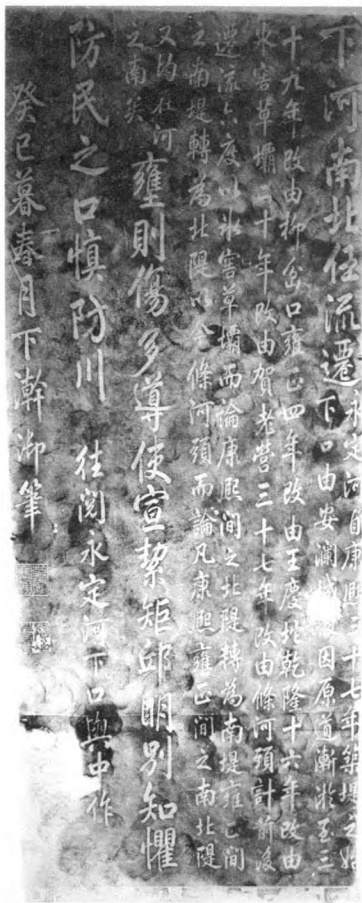 下河南北任流遷
永定河自康熙三十七年築堤之始
下口由安瀾城河因原道漸淤至三
十九年改由柳岔口雍正四年改由王慶坨乾隆十六年改由
水窖草壩二十年改由賀老營三十七年改由條河頭計前後
遷流六度以水窖草壩而論康熙間之北隄轉為南堤雍正間
之南堤轉為北隄以今條河頭而論凡康熙雍正間之南北隄
又均在河
之南矣
壅則傷多導使宣絜矩邱明別知懼
防民之口慎防川 往閱永定河下口輿中作
癸巳暮春月下澣御筆